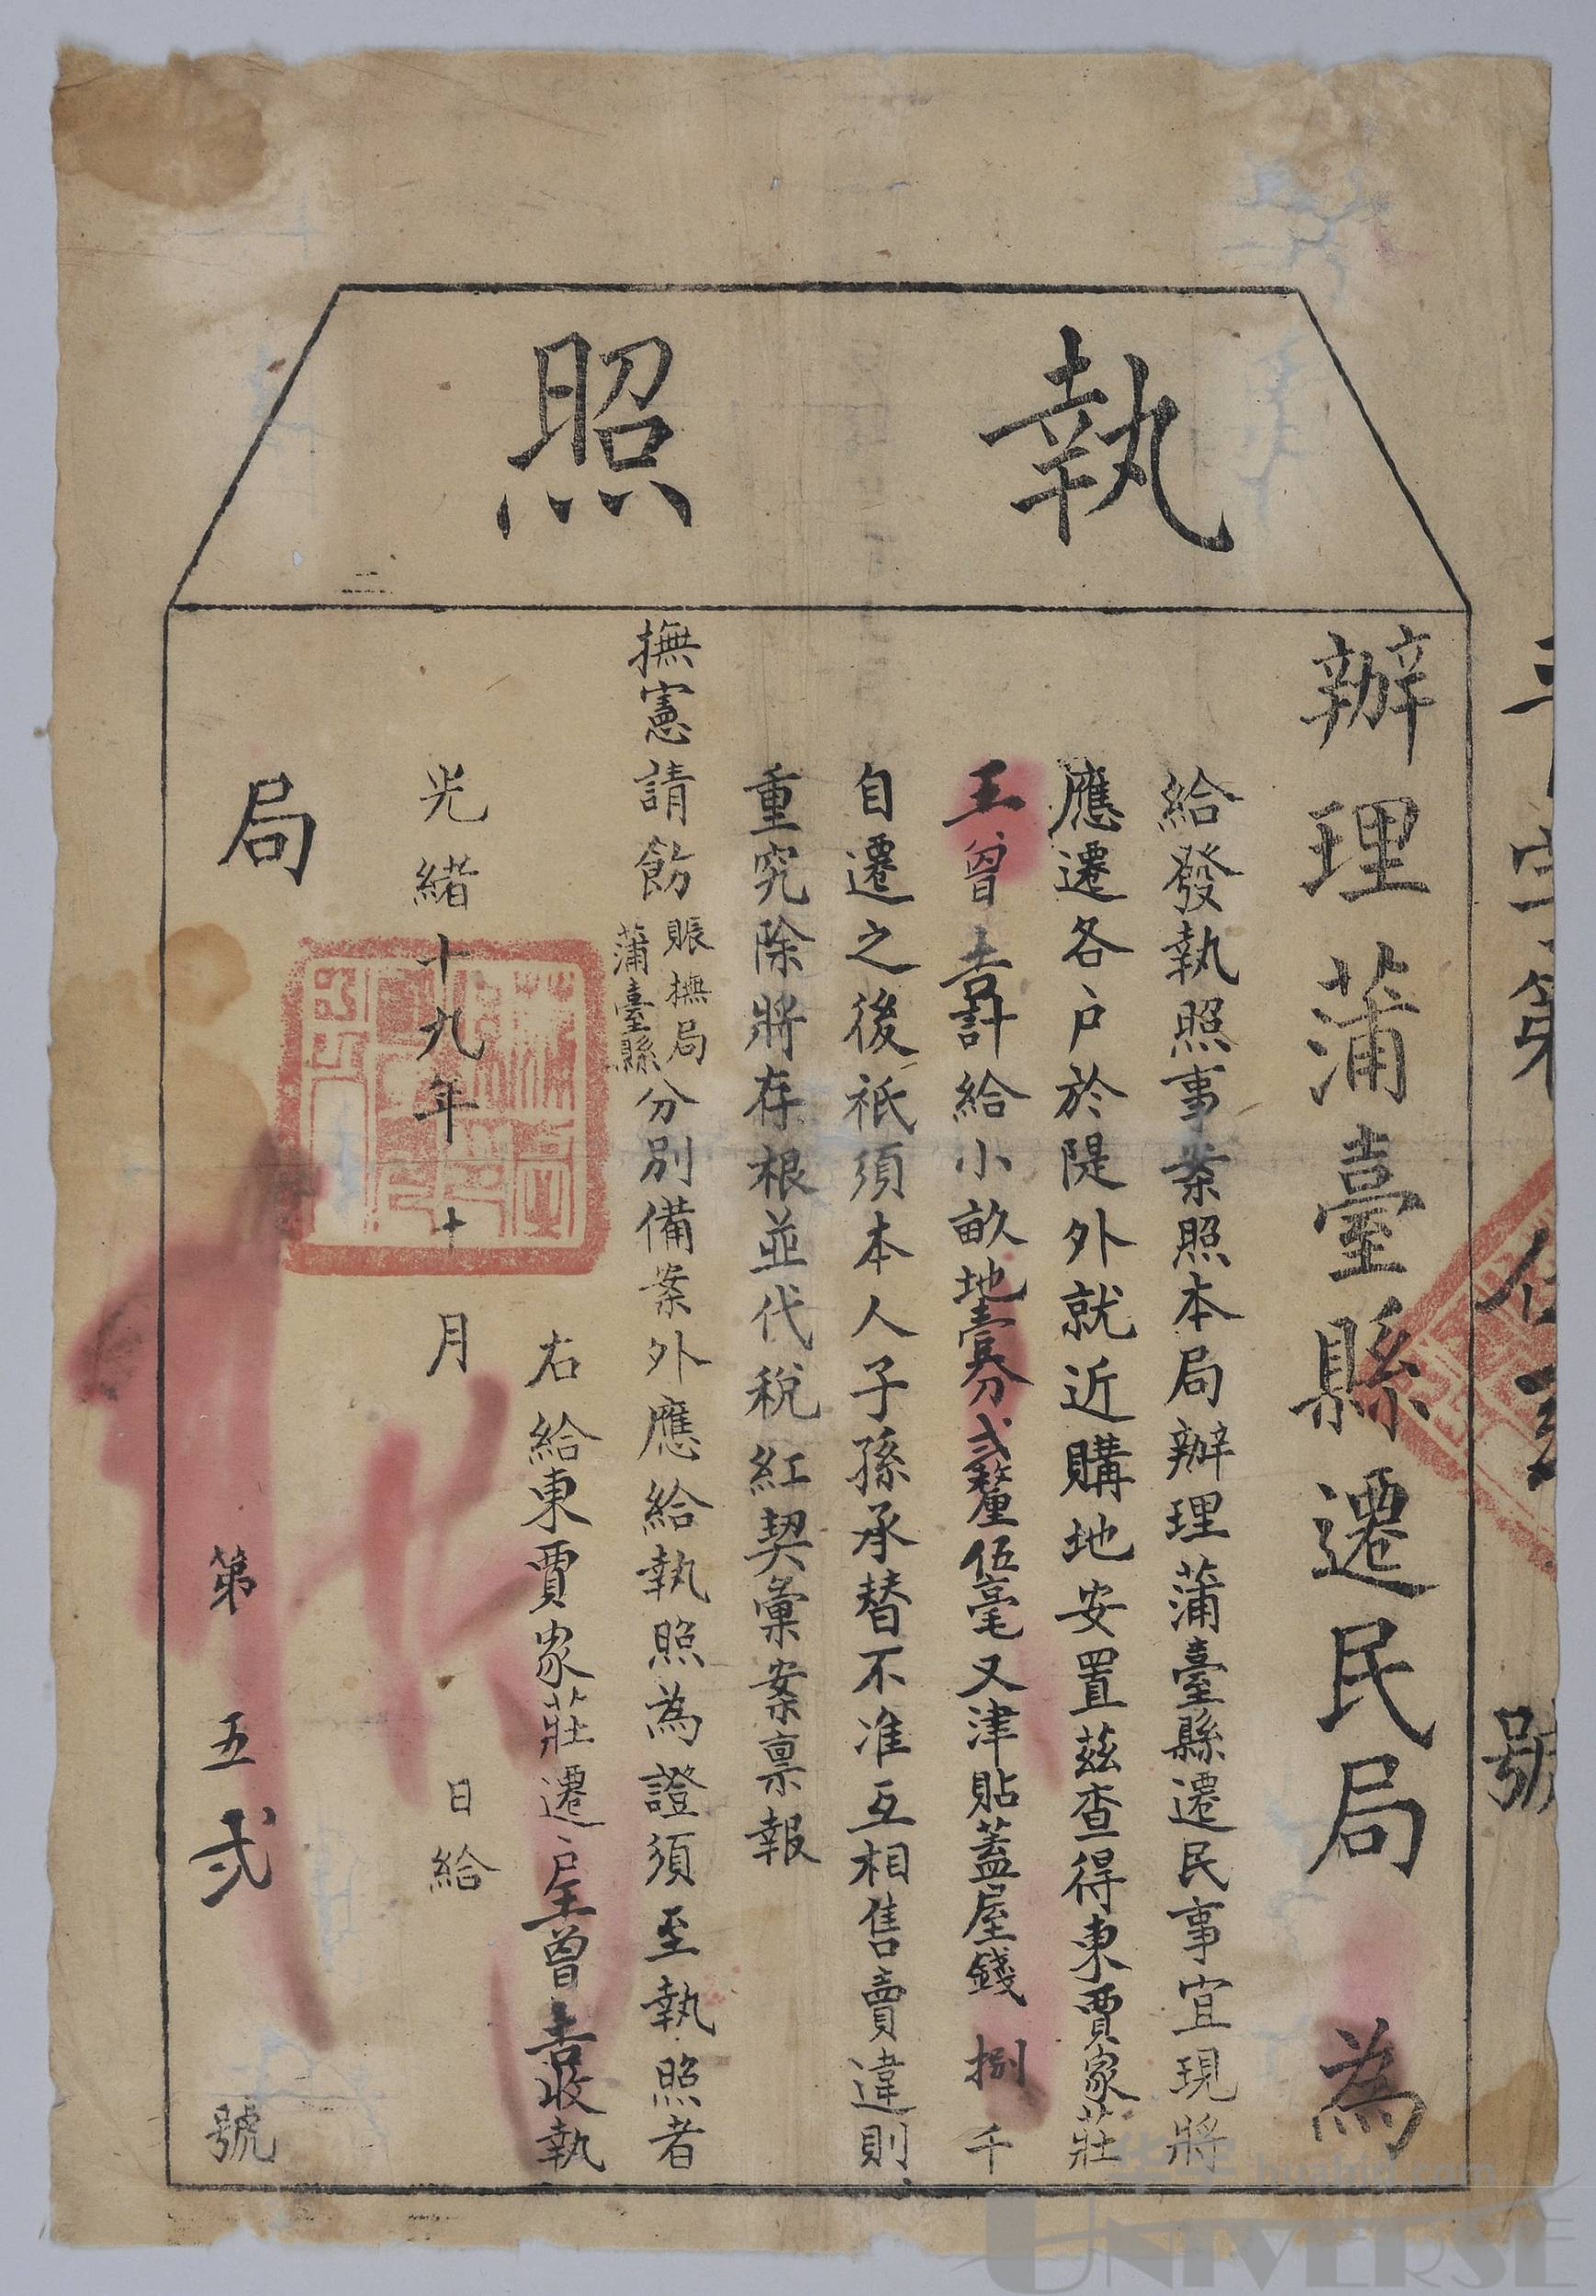 執照
辦理蒲臺縣遷民局為
給發執照事案照本局辦理蒲臺縣遷民事宜現將
應遷各户於隄外就近購地安置茲查得東賈家莊
王曾吉計給小畝地壹分弍釐伍毫又津貼蓋屋錢捌千
自遷之後祇須本人子孫承替不准互相售賣違則
重究除將存根並代稅紅契彙案禀報
撫憲請飭賑撫局蒲臺縣分別備案外應給執照為證須至執照者
右給東賈家莊遷户王曾吉收執
光緒十九年十月日給
局
第五弍號
第
號
UNIVERSE